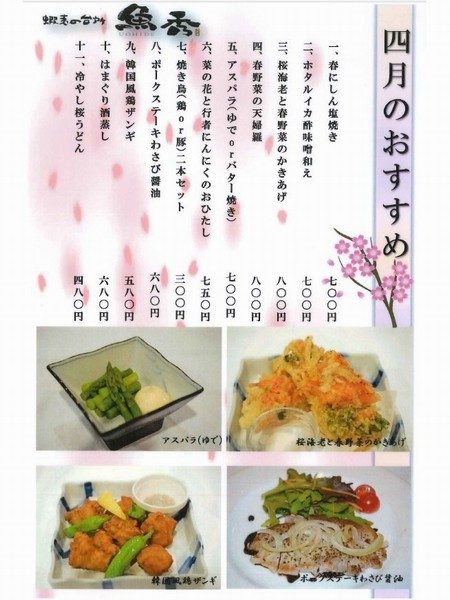 四月のおすすめ
蝦夷の台所 魚秀
UOHIDE
一、春にしん塩焼き 七〇〇円
二、ホタルイカ酢味噌和え 七〇〇円
三、桜海老と春野菜のかきあげ 八〇〇円
四、春野菜の天婦羅 八〇〇円
五、アスパラ(ゆでorバター焼き) 七〇〇円
六、菜の花と行者にんにくのおひたし 七五〇円
七、焼き鳥(鶏or豚)二本セット 三〇〇円
八、ポークステーキわさび醤油 六八〇円
九、韓国風鶏ザンギ 五八〇円
十、はまぐり酒蒸し 六八〇円
十一、冷やし桜うどん 四八〇円
アスパラ(ゆで)
桜海老と春野菜のかきあげ
韓国風鶏ザンギ
ポークステーキわさび醤油